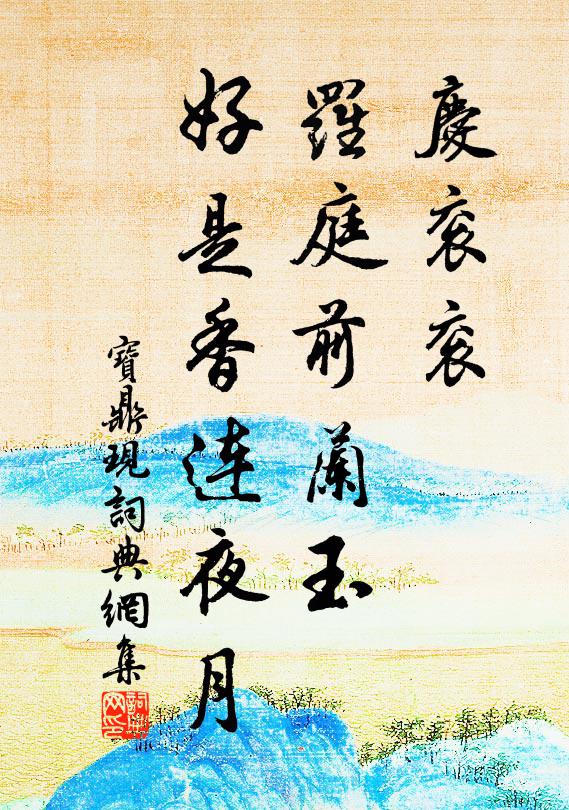 慶衮衮
羅庭前蘭玉
好是香連夜月
寶鼎現詞典網集